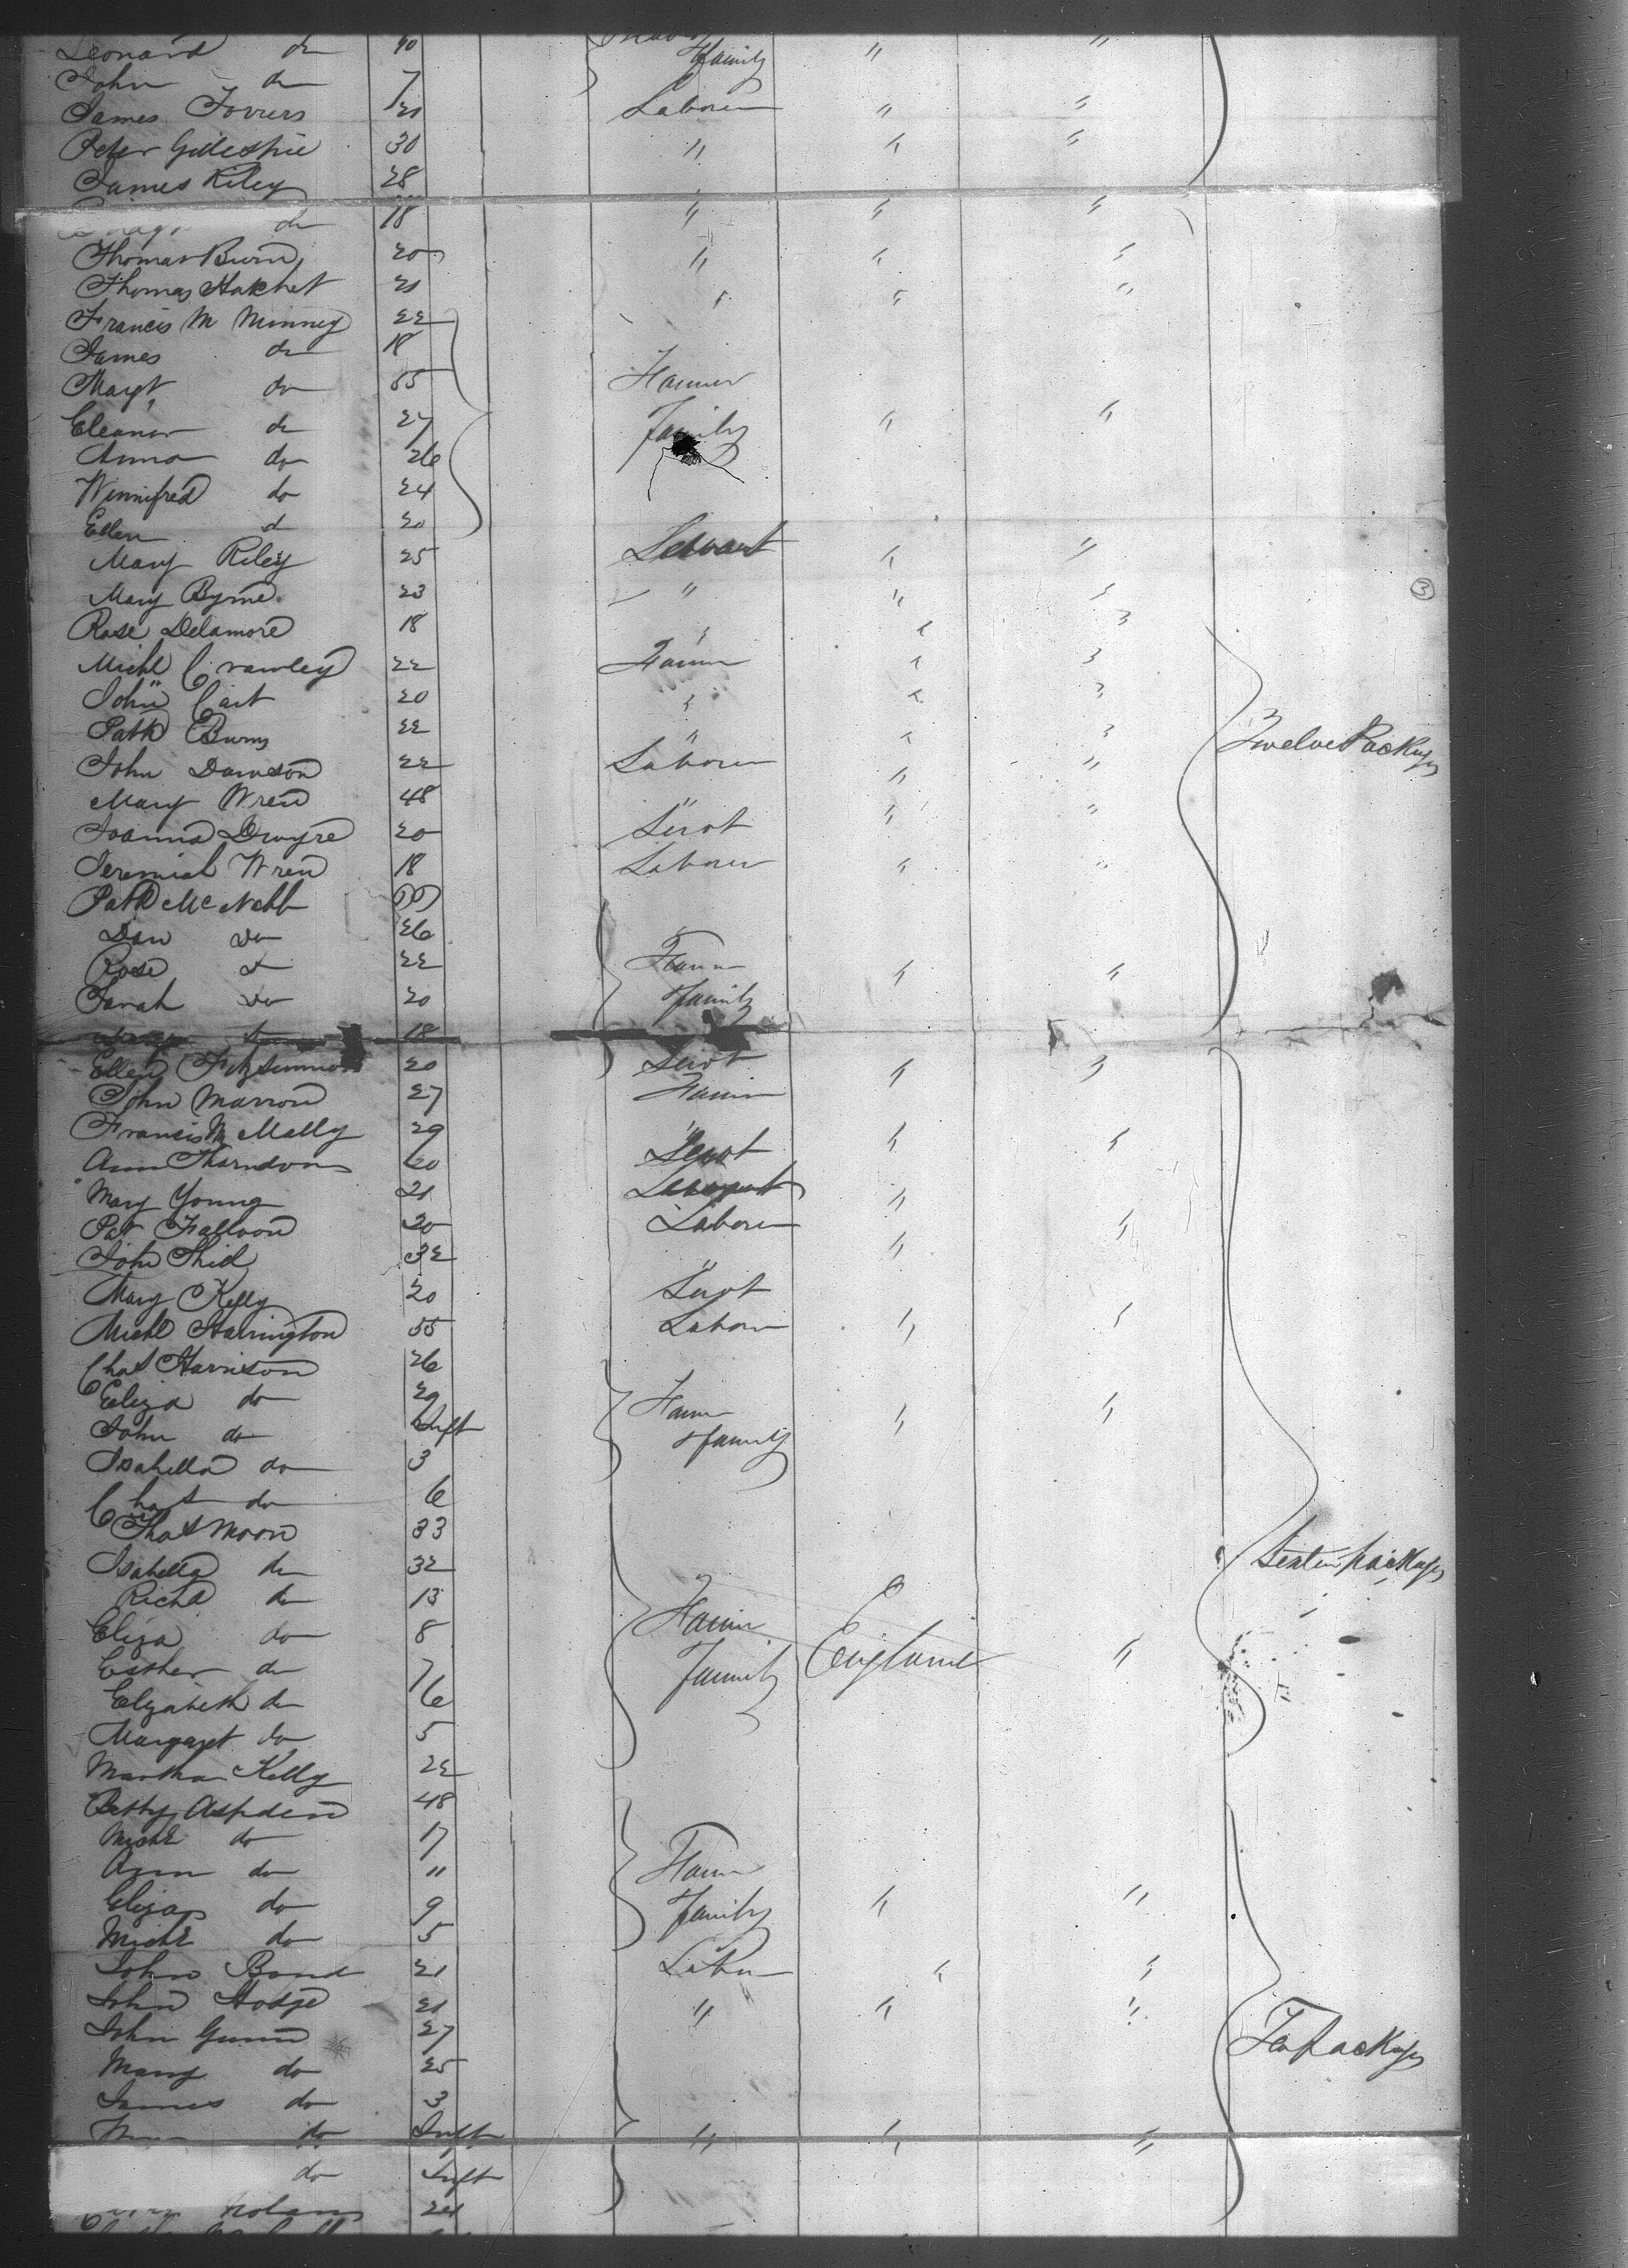 Leonard do 40
family " "
John do 7
James Forrers 21 Laborer " "
Peter Gillespie 30 " " "
James Riley 28
do 18 " " "
Thomas Burns 20 " " "
Thomas Hatchet 21 " " "
Francis Mc Minney 22
James do 18
Margt do 55 Farmer
Eleanor do 27 Family " "
Anna do 26
Winnifred do 24
Ellen do 20
Mary Riley 25 Servant " "
Mary Byrne 23 " " "
3
Rose Delamore 18 " " "
Michl Crawley 22 Farmer " "
John Cart 20 " " "
Patk Burns 22 " " " Twelve Packages
John Dawson 22 Laborer " "
Mary Wren 48 " " "
Joanna Dwyre 20 Servt
Jeremiah Wren 18 Laborer " "
Patk McNabb
Dan do 26
Rose do 22 Farmer " "
Sarah do 20 family
18
Ellen Fitzsimmons 20 Servt " "
John Marron 27 Farmer
Francis Mc Mally 29 " " "
Ann Thorndon 20 Servt
Mary Young 21 Servant "
Pat Falloon 20 Laborer "
John Shid 32 " "
Mary Kelly 20 Servt
Michl Harrington 55 Labor " "
Chas Harrison 26
Eliza do 29 Farmer
John do Inft & family " "
Isabella do 3
Chas do 6
Thos Moon 33
Isabella do 32 Sixteen packages
Richd do 13
Eliza do 8 Farmer
Esther do 7 Family England "
Elizabeth do 6
Margaret do 5
Martha Kelly 22
Betty Aspden 48
Michl do 17
Ann do 11 Farmer
Eliza do 9 family " "
Michl do 5
John Bond 21 Labor " "
John Hodge 21 " " "
John Gunn 27
Mary do 25 Ten Packages
James do 3
do Inft " " "
do Inft
Nolan 24